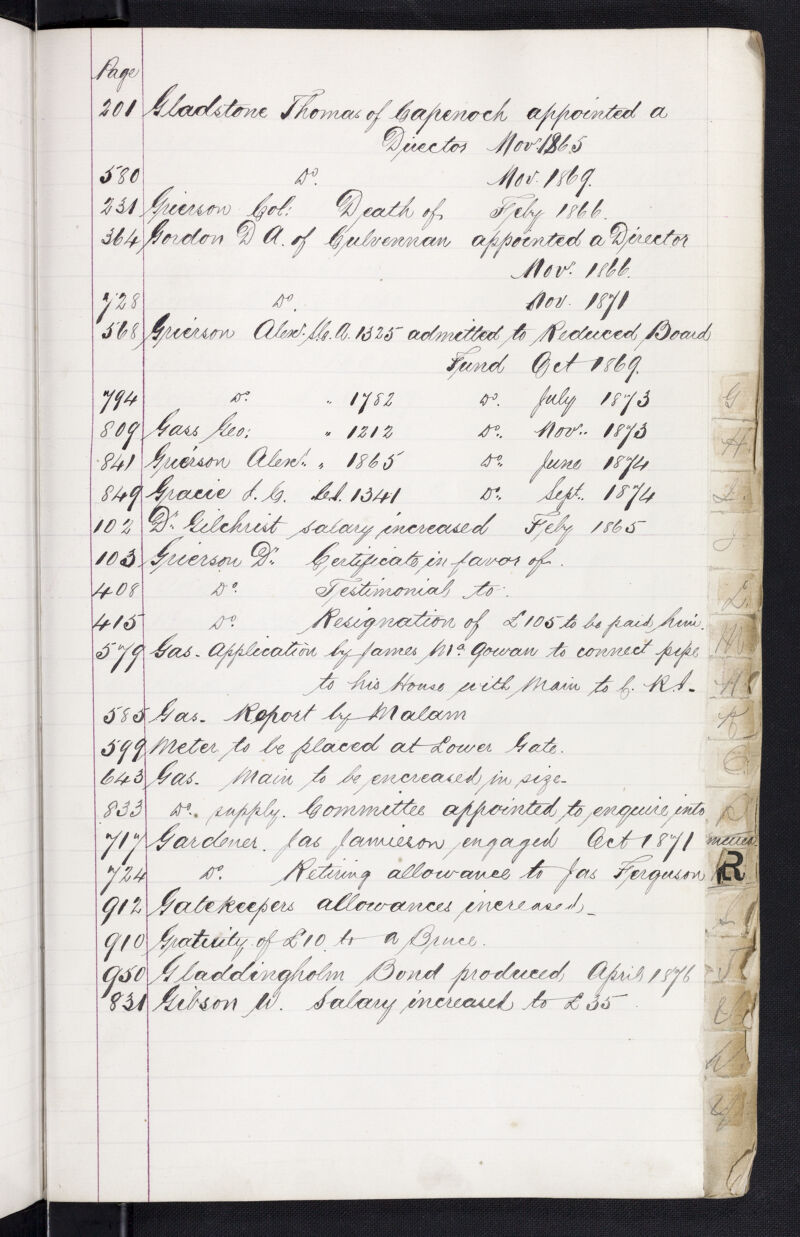 Page
201 Gladstone Thomas of Capenoch appointed a
Director Novr. 1865
580 Do. Nov. 1869.
231 Grierson Col: Death of Feby 1866.
364 Gordon D A. of Culvennan appointed a Director
Novr. 1866.
728 Do. Nov. 1871
568 Grierson Alexr. S.C.A. 1325 admitted to Reduced Board
Fund Oct 1869.
794 Do. " 1782 Do. July 1873
809 Gass Geo: " 1212 Do. Nov.. 1873
841 Grierson Alexr. " 1865 Do. June 1874
849 Gracie J. C. C.I. 1341 Do. Sept. 1874
102 Dr. Gilchrist salary increased Feby 1865
103 Grierson Dr. Certificate in favor of.
408 Do. Testimonial to.
415 Do. Resignation of £105 to be paid him.
579 Gas. Application by James McGowan to connect pipe
to his House with Main to C. R I.
585 Gas. Report by Malam
599 Meter to be placed at Lower Gate.
643 Gas. Main to be encreased in size.
833 Do. supply. Committee appointed to enquire into
717 Gardener. Jas Jamieson engaged Oct 1871
724 Do. Retiring allowance to Jas Ferguson
912 Gatekeepers allowances increased.
910 Gratuity of £10 to A Bruce.
950 Gladdingholm Bond produced April 1876
831 Gibson W. Salary increased to £35
G
H
J
L
K
R